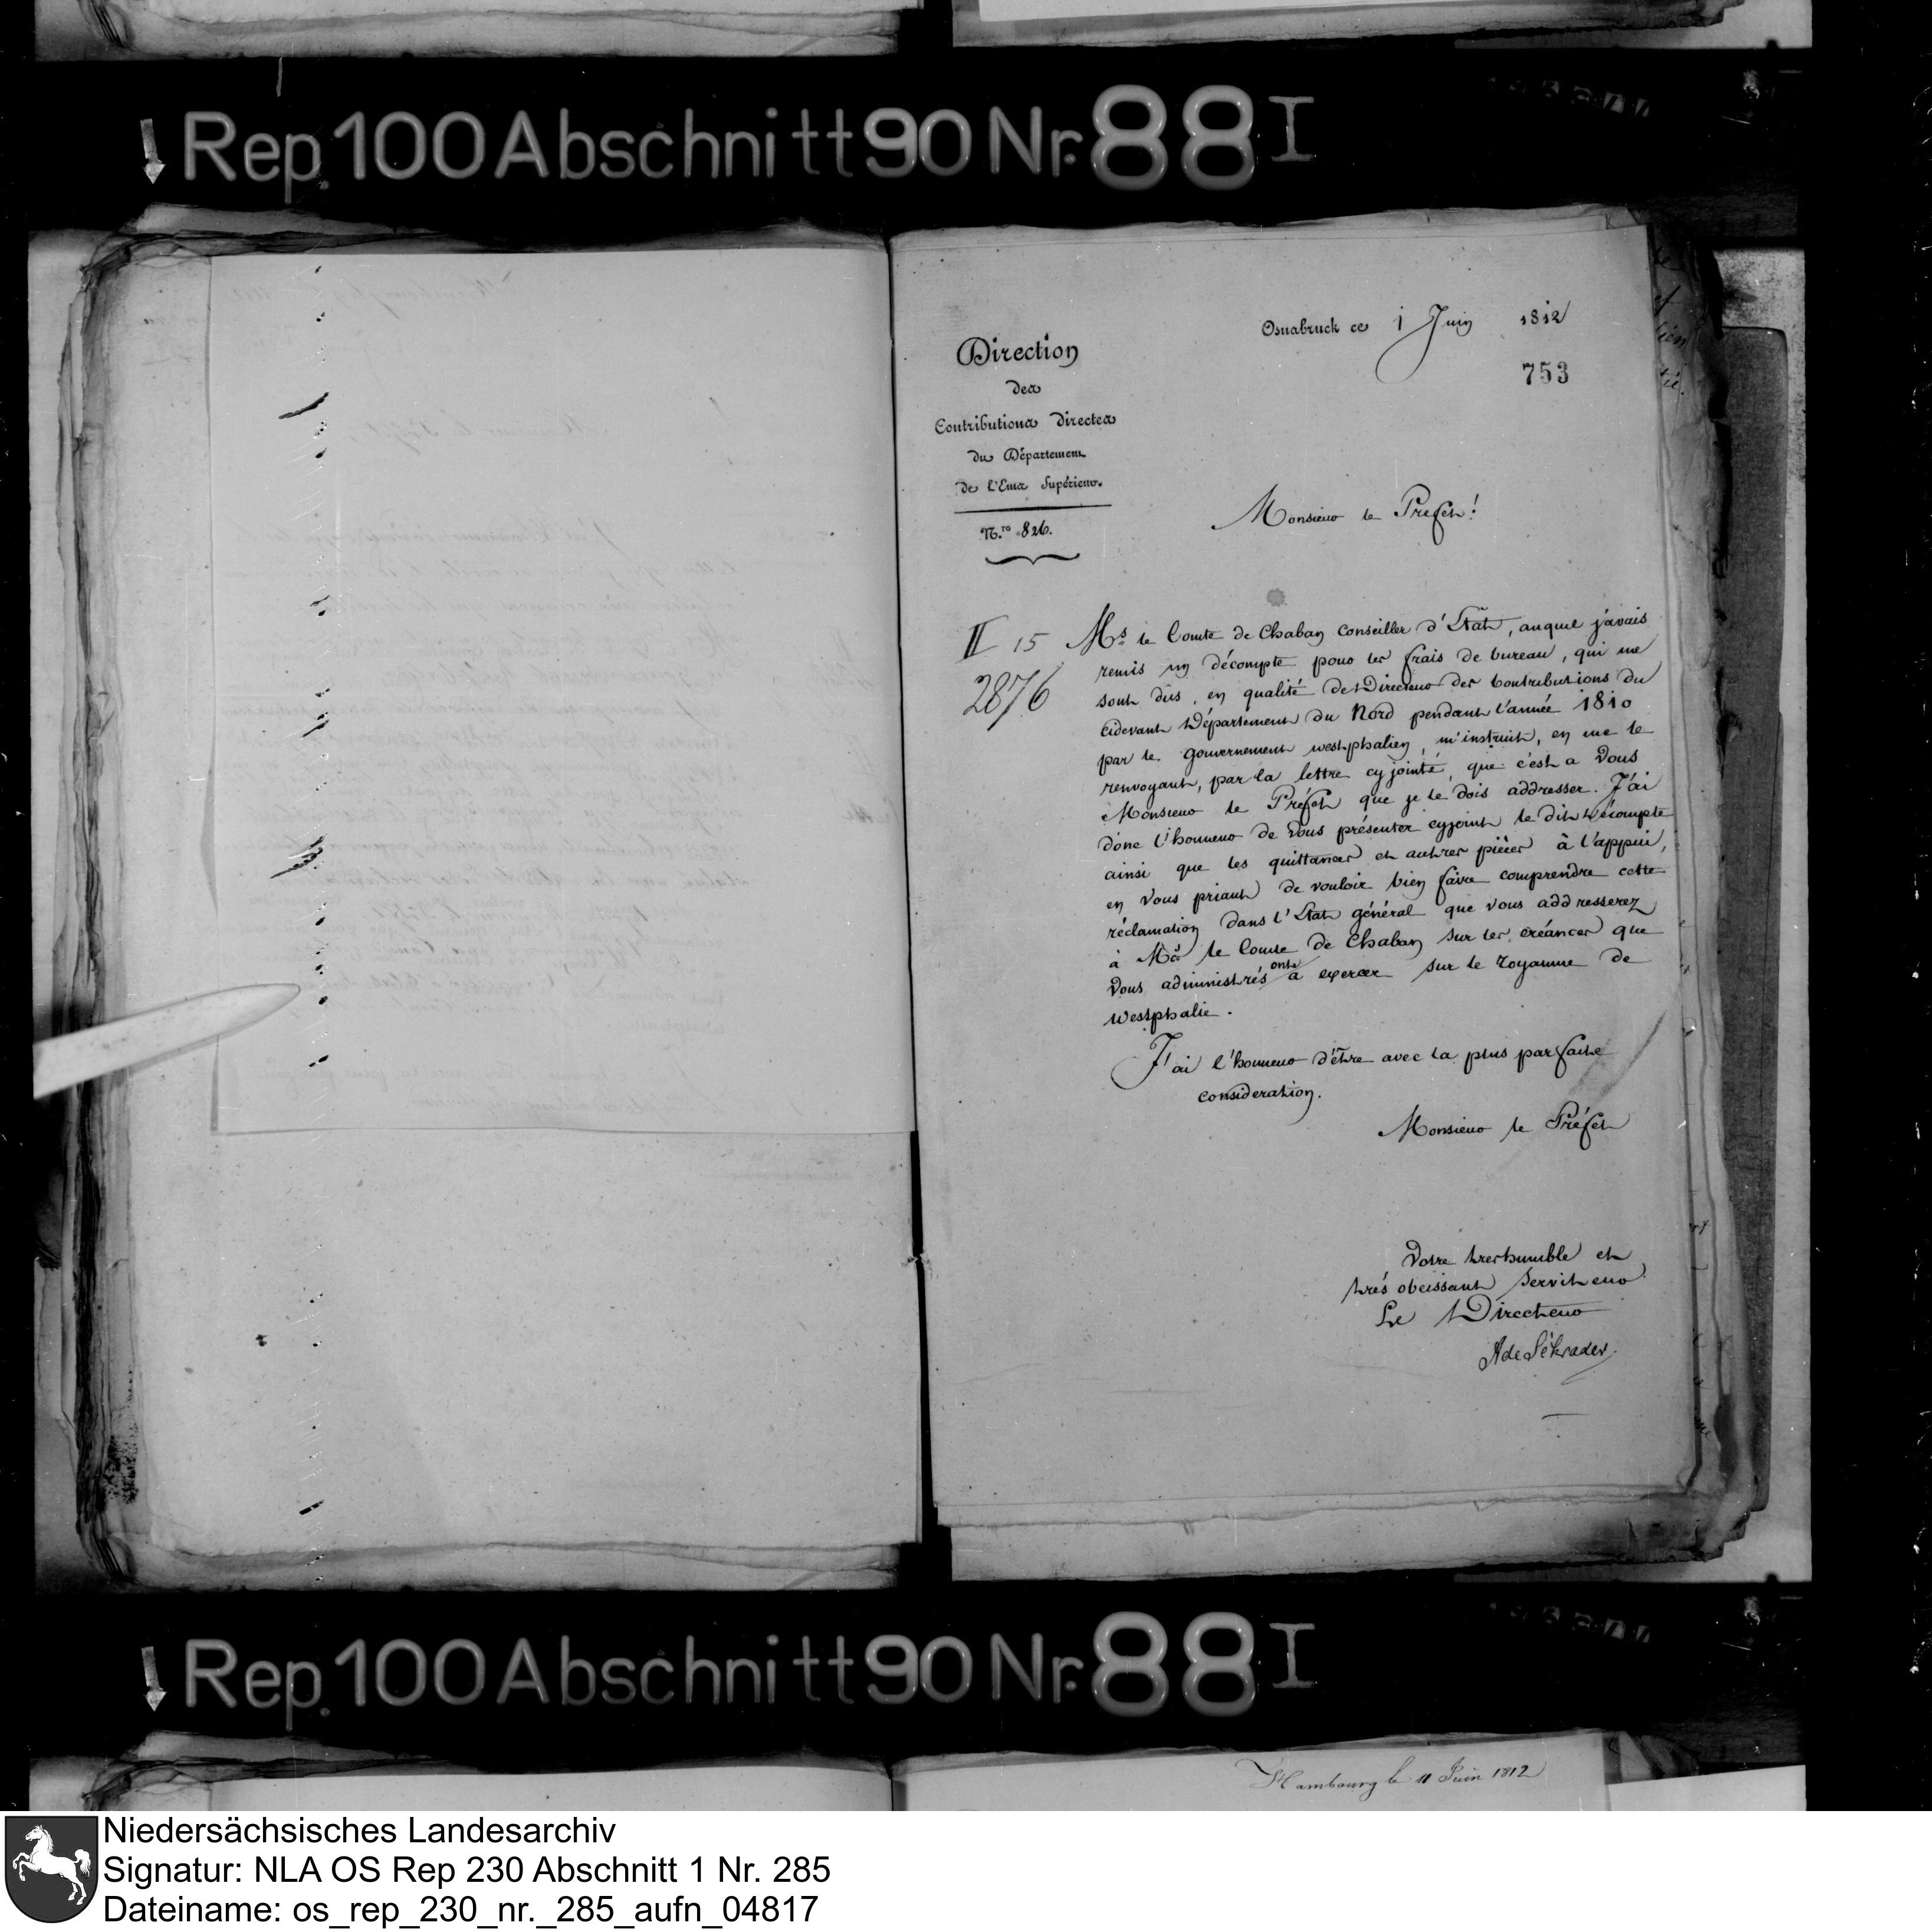 Rep. 100 Abschnitt 90 Nr. 88 I
Osnabruck ce 1 Juin 1812
753
Direction
des
Contributions Directes
du Département
de l'Ems Supérieur.
N.ro 826.
Monsieur le Prefet!
II 15
2876
Mrs. le Comte de Chaban Conseiller d'Etat, auquel j'avais
remis un décompte pour les frais de bureau, qui me
sont dûs, en qualité de Directeur des Contributions du
cidevant Département du Nord pendant l'année 1810
par le gouvernement westphalien, m'instruit, en me le
renvoyant, par la lettre cyjointe, que c'est a Vous
Monsieur le Préfet que je le dois addresser. J'ai
donc l'honneur de Vous présenter cyjoint le dit Décompte
ainsi que les quittances et autres pièces à l'appui,
en Vous priant de vouloir bien faire comprendre cette
réclamation dans l'Etat général que Vous addresserez
à Mrs. le Comte de Chaban sur les créances que
Vous administrés ont a exercer sur le royaume de
westphalie.
J'ai l'honneur d'être avec la plus parfaite
consideration.
Monsieur le Préfet
Votre treshumble et
trés obeissant serviteur
Le Directeur
A de Schrader.
Rep. 100 Abschnitt 90 Nr. 88 I
Hambourg le 11 Juin 1812
Niedersächsisches Landesarchiv
Signatur: NLA OS Rep 230 Abschnitt 1 Nr. 285
Dateiname: os_rep_230_nr._285_aufn_04817